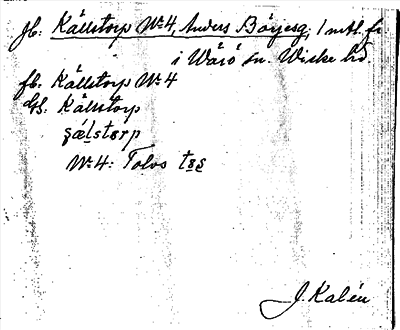 Jb: Källstorp No 4, Anders Börjesg. 1 mtl. fr
i Wärö sn. Wiske hd.
fb. Källstorp No 4
Gs. Källstorp
No 4: Tolvs
J. Kalén